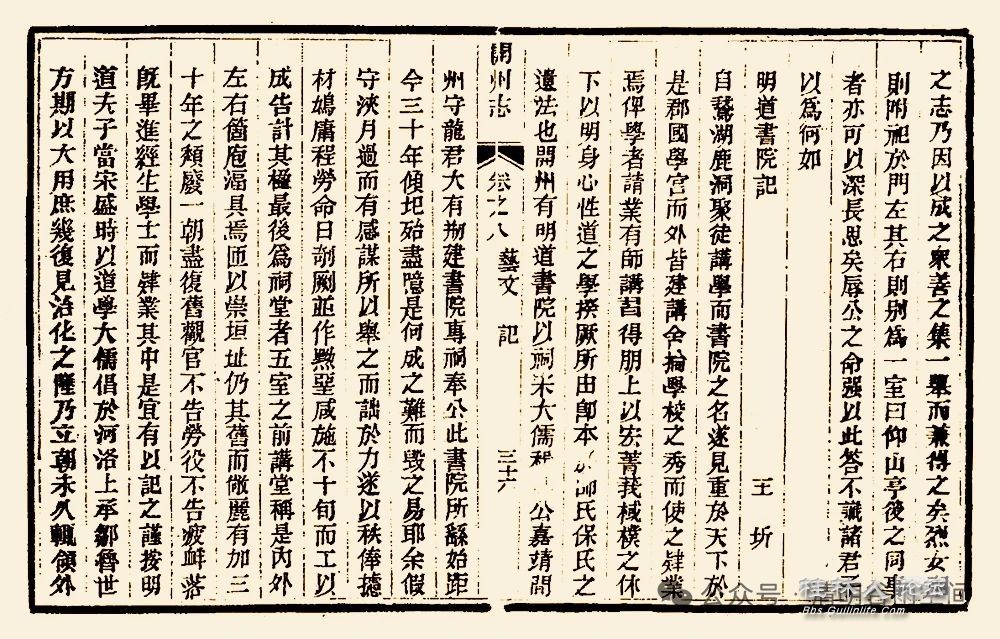 之志乃因以成之眾善之集一舉而兼得之矣烈女
則附祀於門左其右則别為一室曰仰山亭後之同事
者亦可以深長思矣辱公之命强以此答不識諸君子
以為何如
明道書院記 王圻
自鵞湖鹿洞聚徒講學而書院之名遂見重於天下於
是郡國學宫而外皆建講舍掄學校之秀而使之肄業
焉俾學者請業有師講習得朋上以宏菁莪棫樸之休
下以明身心性道之學揆厥所由卽本於師氏保氏之
遺法也開州有明道書院以祠宋大儒程 公嘉靖間
開州志 卷之八 藝文 記 三十六
州守龍君大有剏建書院專祠奉公此書院所繇始距
今三十年傾圯殆盡噫是何成之難而毁之易耶余假
守浹月過而有感謀所以舉之而詘於力遂以秩俸摅
材鳩庸程勞命日剞劂並作黝堊咸施不十旬而工以
成告計其楹最後為祠堂者五室之前講堂稱是内外
左右箇庖湢具焉匝以崇垣址仍其舊而敞麗有加三
十年之頽廢一朝盡復舊觀官不告勞役不告疲衅落
既畢進經生學士而肄業其中是宜有以記之謹按明
道夫子當宋盛時以道學大儒倡於河洛上承鄒魯世
方期以大用庶幾復見治化之隆乃立朝未久輒領外
公众号
桂林谷粉论坛
Bbs.Guilinlife.Com